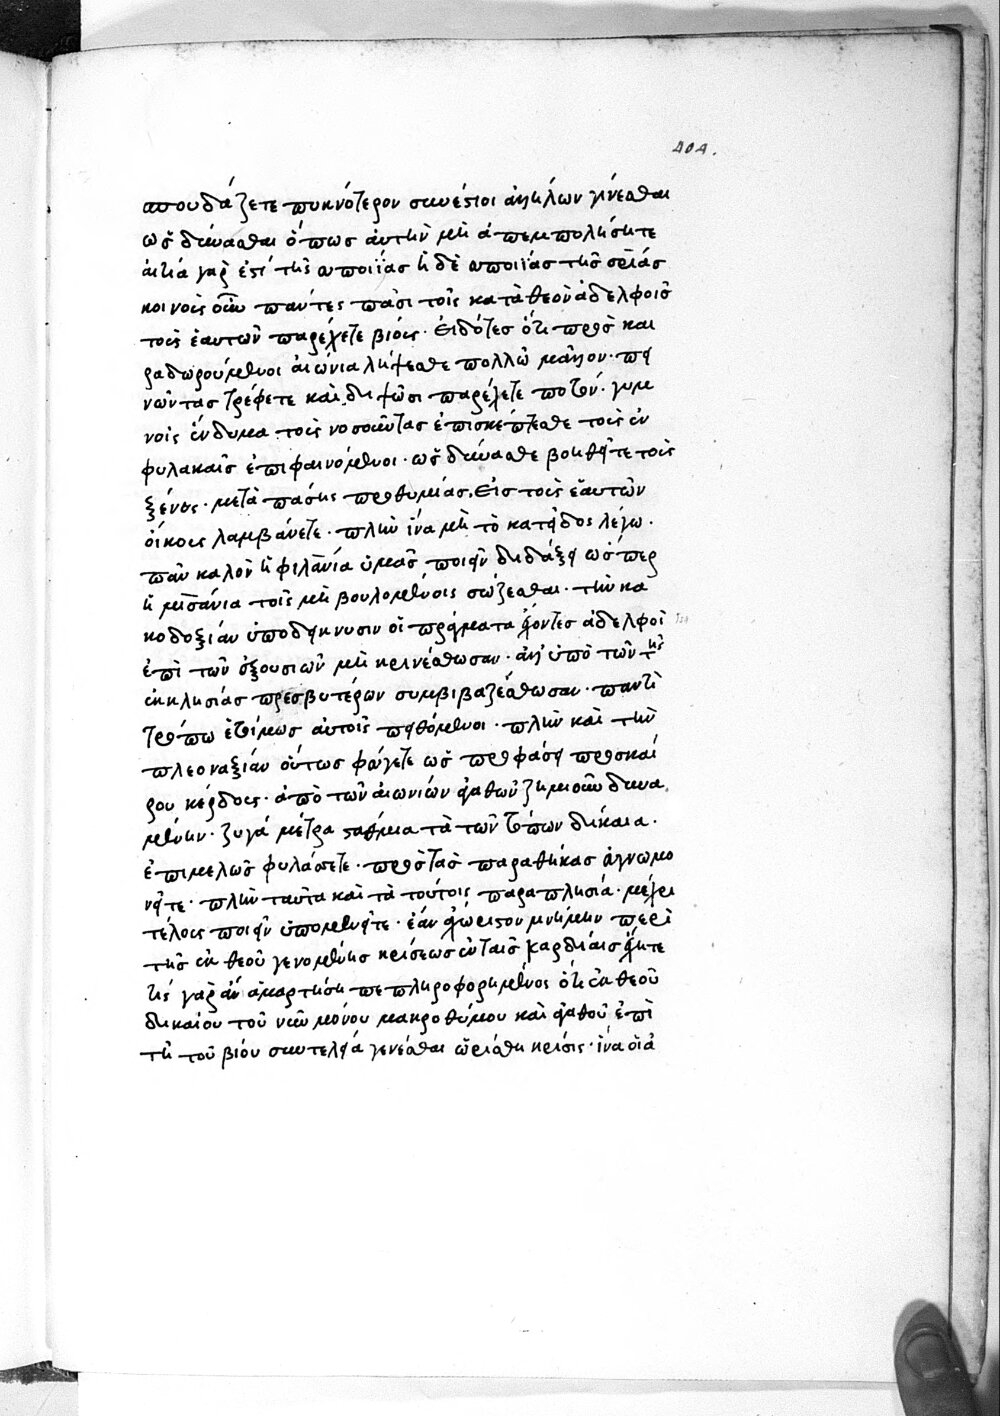 404.
σπουδάζετε πυκνότερον συνέστιοι ἀλλήλων γίνεσθαι
ὡς δύνασθαι ὅπως αὐτὴν μὴ ἀπεμπολήσητε
αἰτία γάρ ἐστί τῆς εὐποιΐας ἡ δὲ εὐποιΐας τῆς σωτηρίας
κοινοὺς οὖν πάντες πᾶσι τοῖς κατὰ θεὸν ἀδελφοῖς
τοὺς ἑαυτῶν παρέχετε βίους· εἰδότες ὅτι πρὸς και
ρα δωρούμενοι αἰώνια λήψεσθε πολλῷ μᾶλλον· πει
νῶντας τρέφετε καὶ διψῶσι παρέχετε ποτόν· γυμ
νοῖς ἔνδυμα τοὺς νοσοῦντας ἐπισκέπτεσθε τοὺς ἐν
φυλακαῖς ἐπιφαινόμενοι· ὡς δύνασθε βοηθεῖτε τοὺς
ξένους· μετὰ πάσης προθυμίας εἰς τοὺς ἑαυτῶν
οἴκους λαμβάνετε· πλὴν ἵνα μὴ τὸ κατ εἶδος λέγω·
πᾶν καλὸν ἡ φιλανία ὑμᾶς ποιεῖν διδάξει ὥσπερ
ἡ μισανία τοῖς μὴ βουλομένοις σώζεσθαι· τὴν κα
κοδοξίαν ὑποδείκνυσιν οἱ πράγματα ἔχοντες ἀδελφοὶ
ἐπὶ τῶν ἐξουσιῶν μὴ κρινέσθωσαν· ἀλλ' ὑπὸ τῶν τῆς
ἐκκλησίας πρεσβυτέρων συμβιβαζέσθωσαν· παντὶ
τρόπω ἑτοίμως αὐτοῖς πειθόμενοι· πλὴν καὶ τὴν
πλεοναξίαν οὕτως φεύγετε ὡς προφάσει προσκαί
ρου κέρδους· ἀπὸ τῶν αἰωνίων ἀγαθῶν ζημιοῦν δυνα
μένην· ζυγά μέτρα στάθμια τὰ τῶν τόπων δίκαια·
ἐπιμελῶς φυλάσσετε· πρὸς τὰς παραθήκας ἀγνωμο
νεῖτε· πλὴν ταῦτα καὶ τὰ τούτοις παραπλησία· μέχρι
τέλους ποιεῖν ὑπομενεῖτε· ἐὰν ἀχώριστον μνήμην περὶ
τῆς ἐκ θεοῦ γενομένης κρίσεως ἐν ταῖς καρδίαις ἔχητε
τίς γὰρ ἂν ἁμαρτήσῃ πεπληροφορημένος ὅτι ἐκ θεοῦ
δικαίου τοῦ νῦν μόνου μακροθύμου καὶ ἀγαθοῦ ἐπὶ
τῇ τοῦ βίου συντελείᾳ γενέσθαι ὡρίσθη κρίσις· ἵνα οἱ ἀ